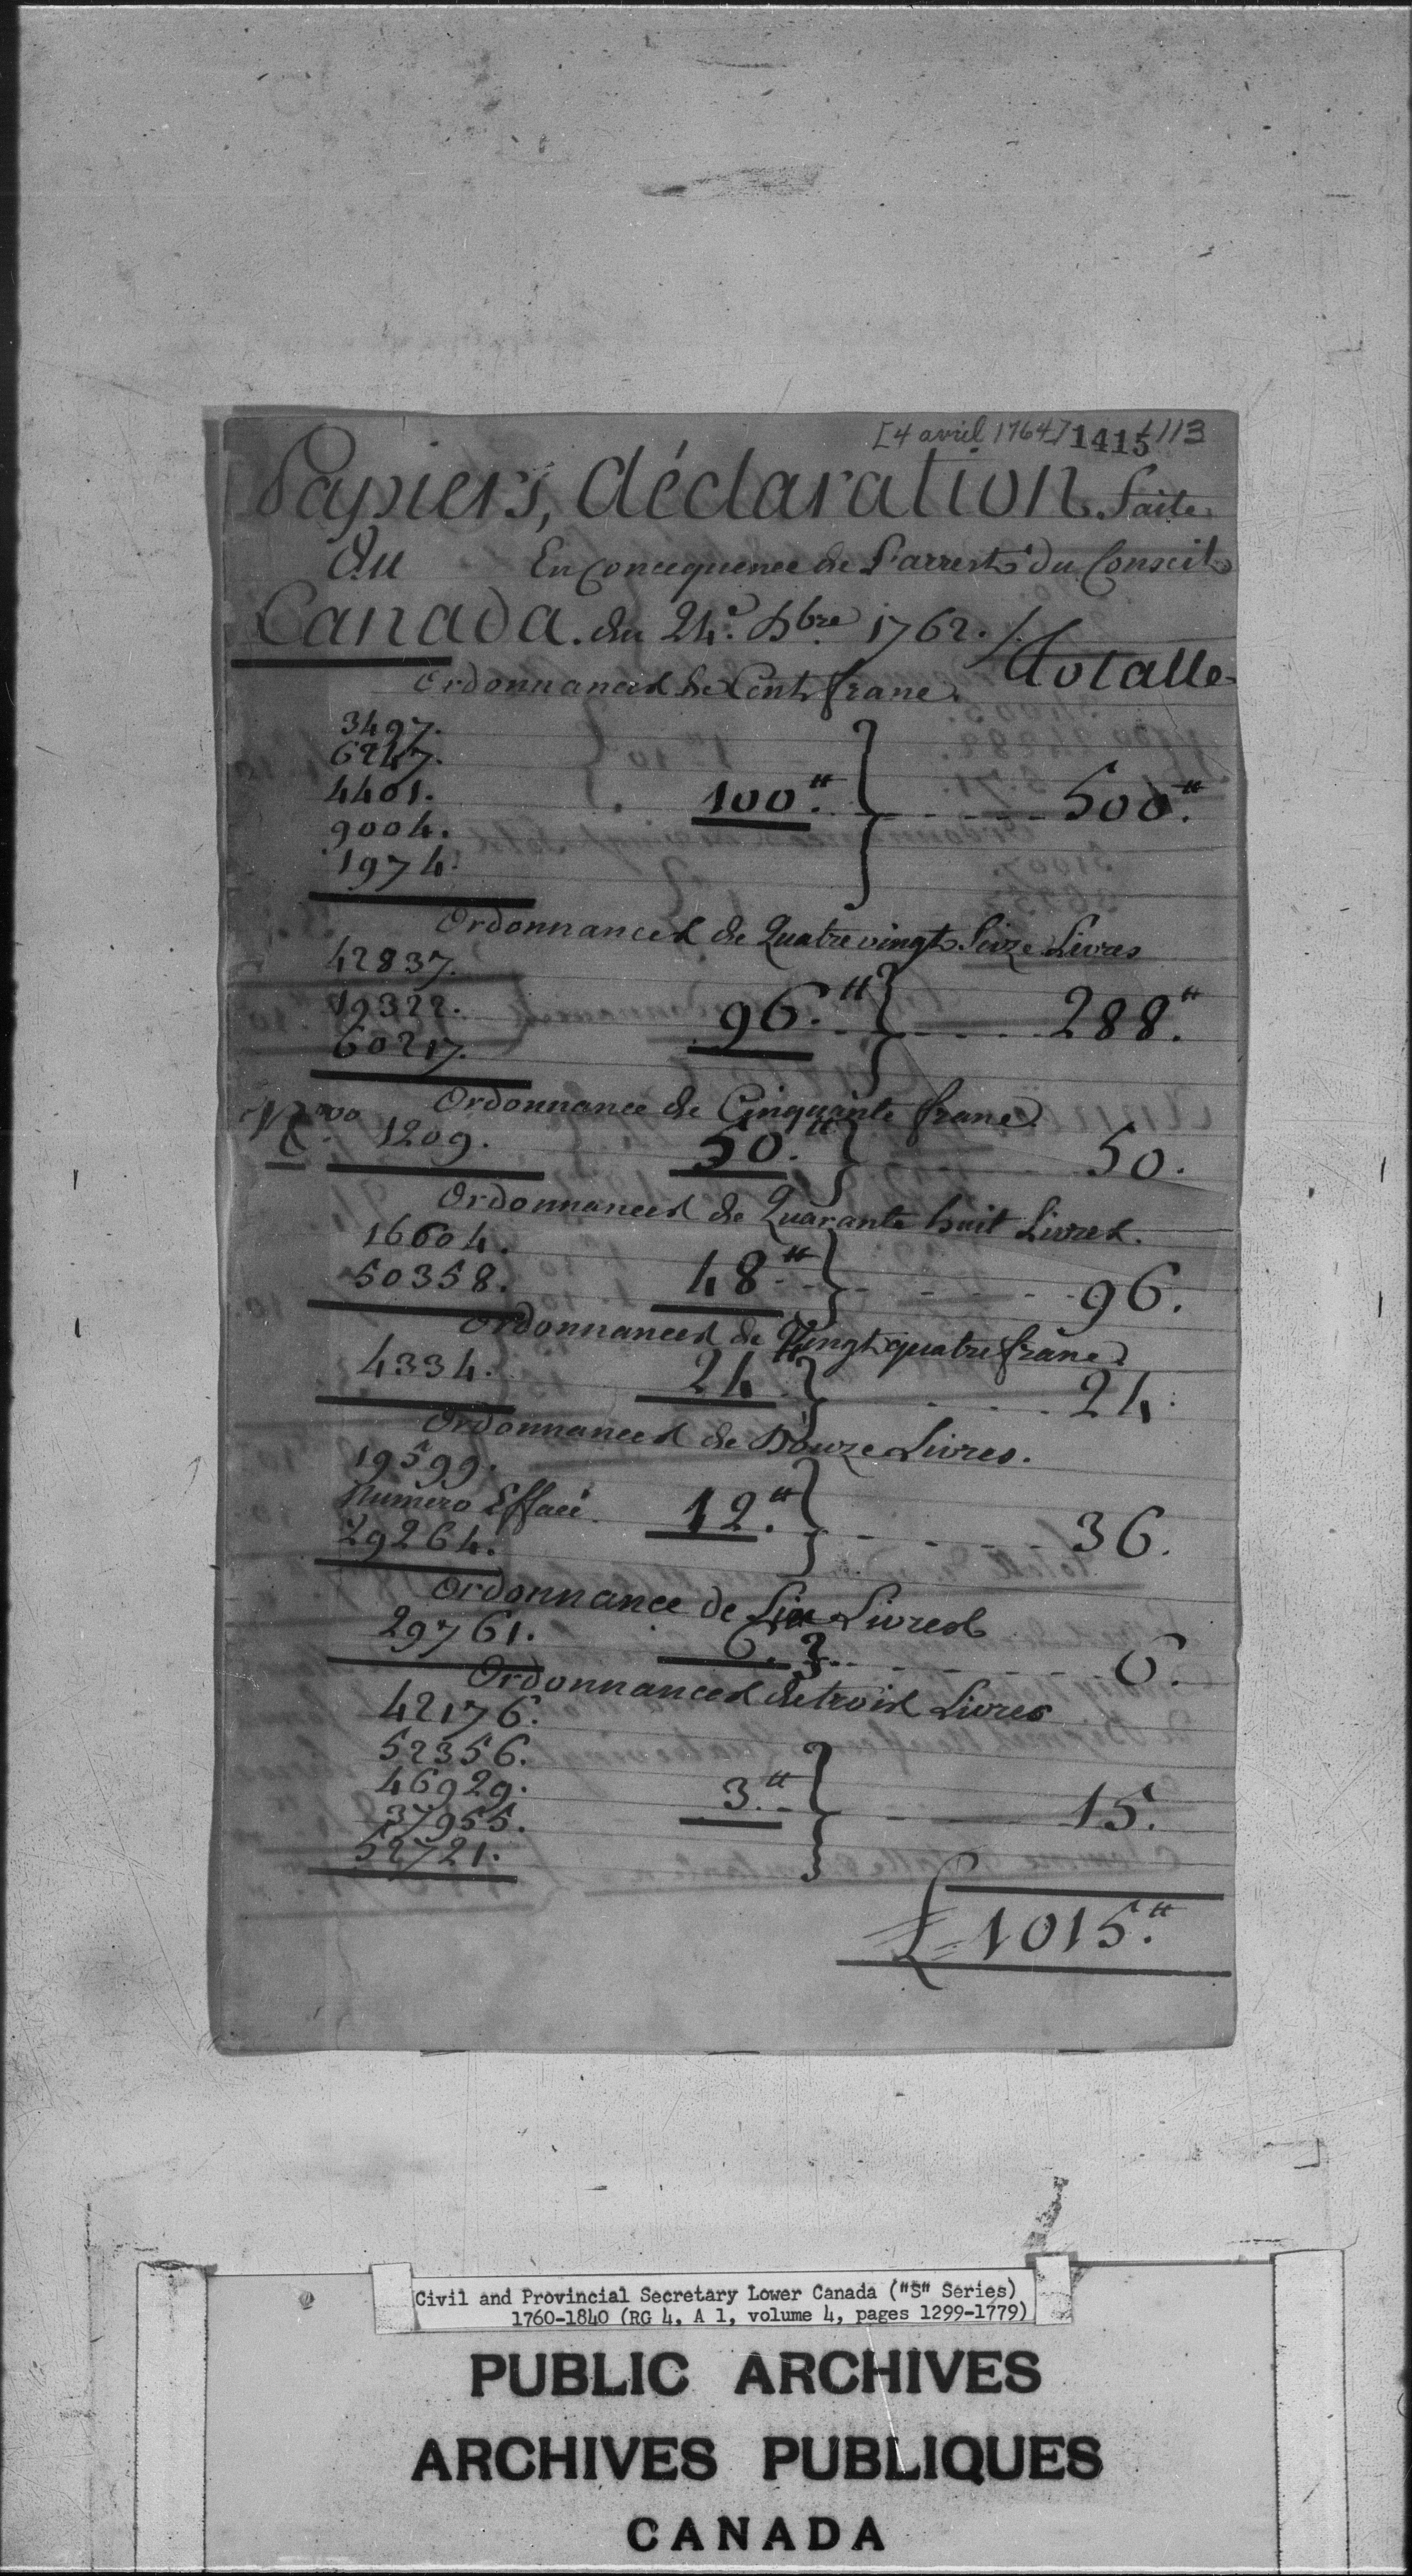 [4 avril 1764] 1415 113
Papiers, déclaration faite
du En Concequence de L'arrest du Conseil
Canada. du 24.e Xbre 1762. /.
Totalle
Ordonnances de Cent franc.
3497.
6247.
4401. 100.tt 500.tt
9004.
1974.
Ordonnances de Quatre vingt Seize Livres
42837.
19322. 96.tt 288.tt
60217.
Ordonnance de Cinquante franc.
1209. 50.tt 50.
Ordonnances de Quarante huit Livres.
16604.
50358. 48.tt 96.
Ordonnances de Vingt quatre franc.
4334. 24.tt 24.
Ordonnances de Douze Livres.
19599.
Numero Effacé. 12.tt 36.
29264.
Ordonnance de Six Livres
29761. 6. 6.
Ordonnances de trois Livres
42176.
52356.
46929. 3.tt 15.
37955.
52721.
£ 1015.tt
Civil and Provincial Secretary Lower Canada ("S" Series)
1760-1840 (RG 4, A 1, volume 4, pages 1299-1779)
PUBLIC ARCHIVES
ARCHIVES PUBLIQUES
CANADA